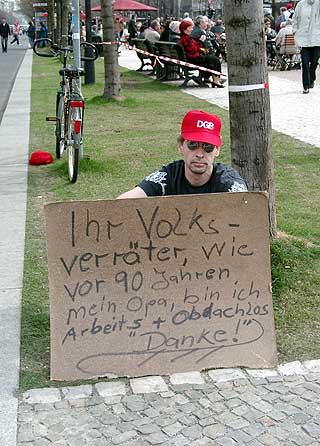 DGB
Ihr Volks-
verräter, wie
vor 90 Jahren
mein Opa, bin ich
Arbeits + Obdachlos
"Danke!"